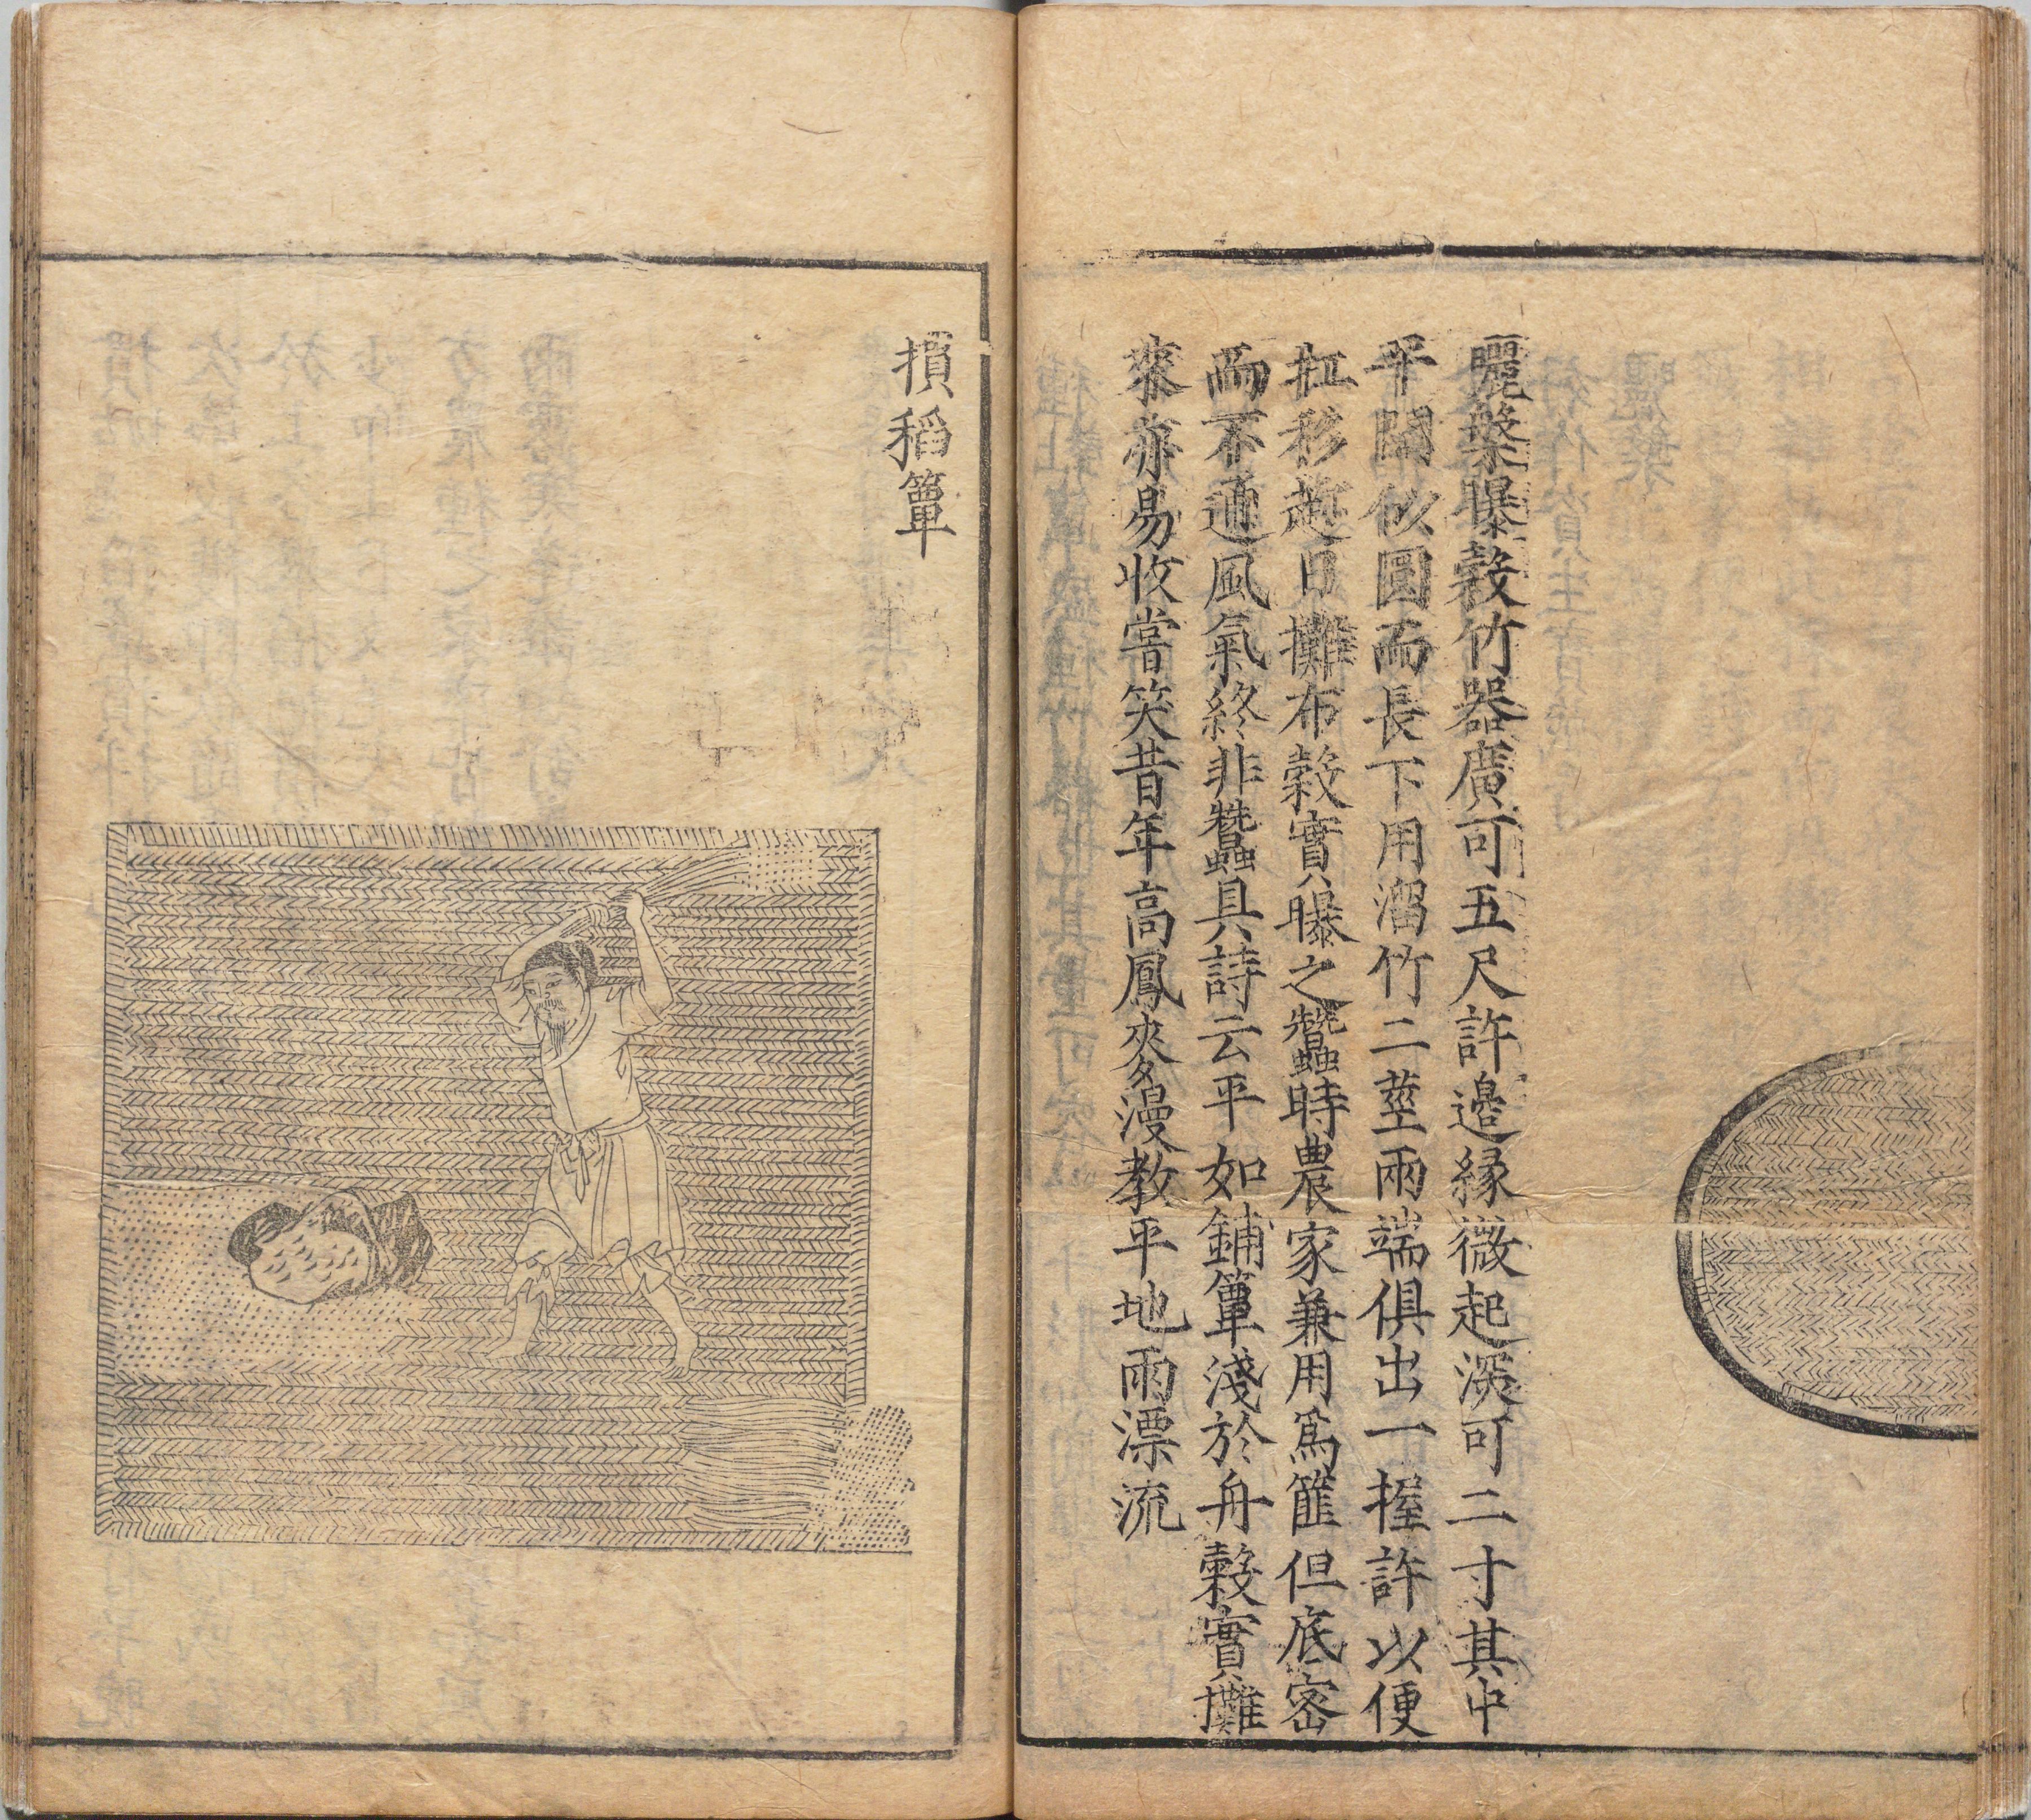 曬槃曝穀竹器廣可五尺許邉緣微起深可二寸其中
平闊似圓而長下用溜竹二莖兩端俱出一握許以便
扛移趂日攤布穀實曝之蠶時農家兼用爲篚但底密
而不通風氣終非蠶具詩云平如鋪簟淺於舟穀實攤
來亦易收嘗笑昔年高鳳麥漫教平地雨漂流
摜稻簟